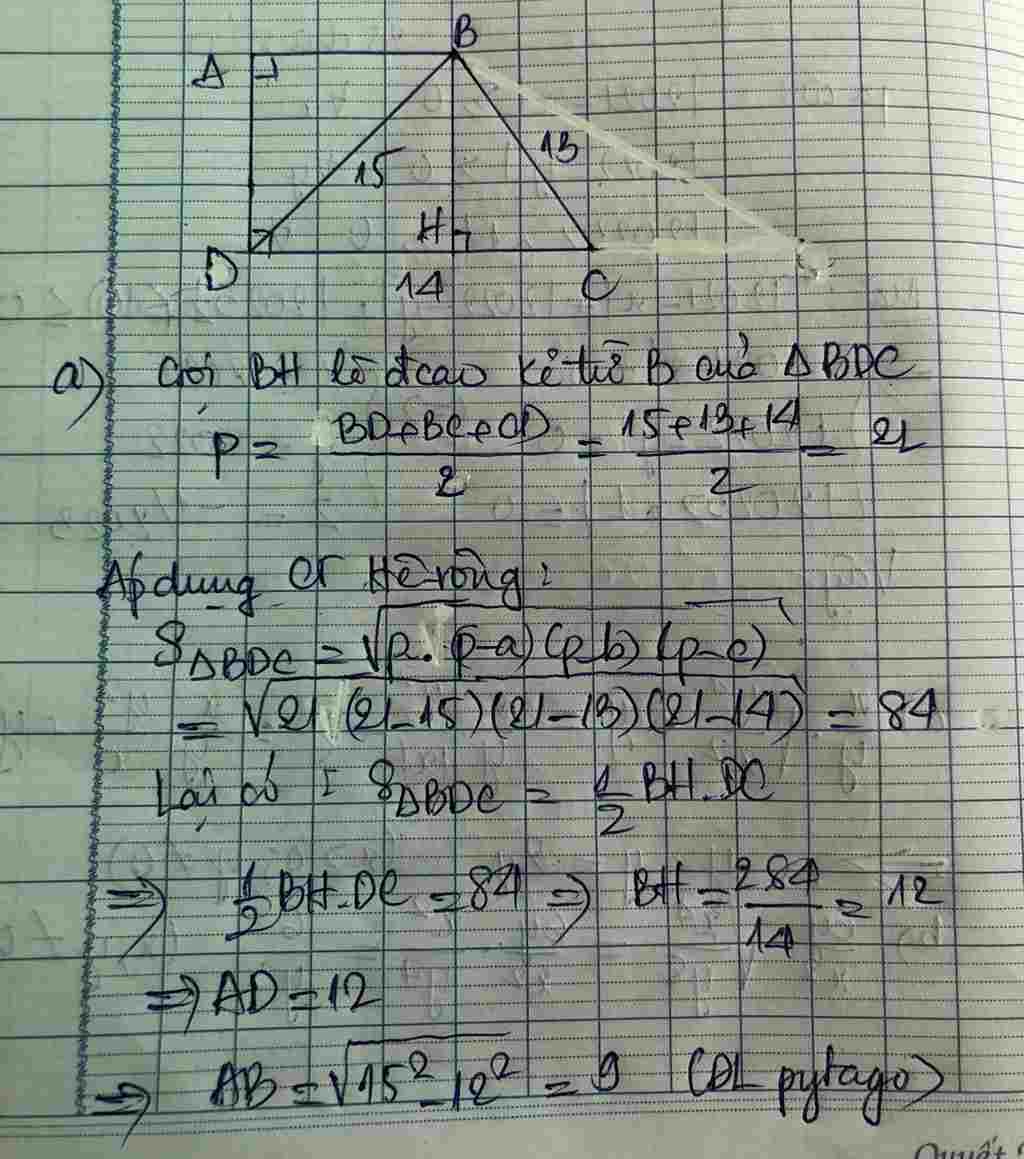 B
A
15
13
H
D
14
C
a) Gọi BH là đcao kẻ từ B của ΔBDC
P = (BD+BC+CD)/2 = (15+13+14)/2 = 21
Áp dụng CT Hê-rông:
S ΔBDC = √p.(p-a)(p-b)(p-c)
= √21(21-15)(21-13)(21-14) = 84
Lại có : S ΔBDC = 1/2 BH.DC
⇒ 1/2 BH.DC = 84 ⇒ BH = 2 84/14 = 12
⇒ AD = 12
⇒ AB = √15² - 12² = 9 (ĐL pytago)
Quyết